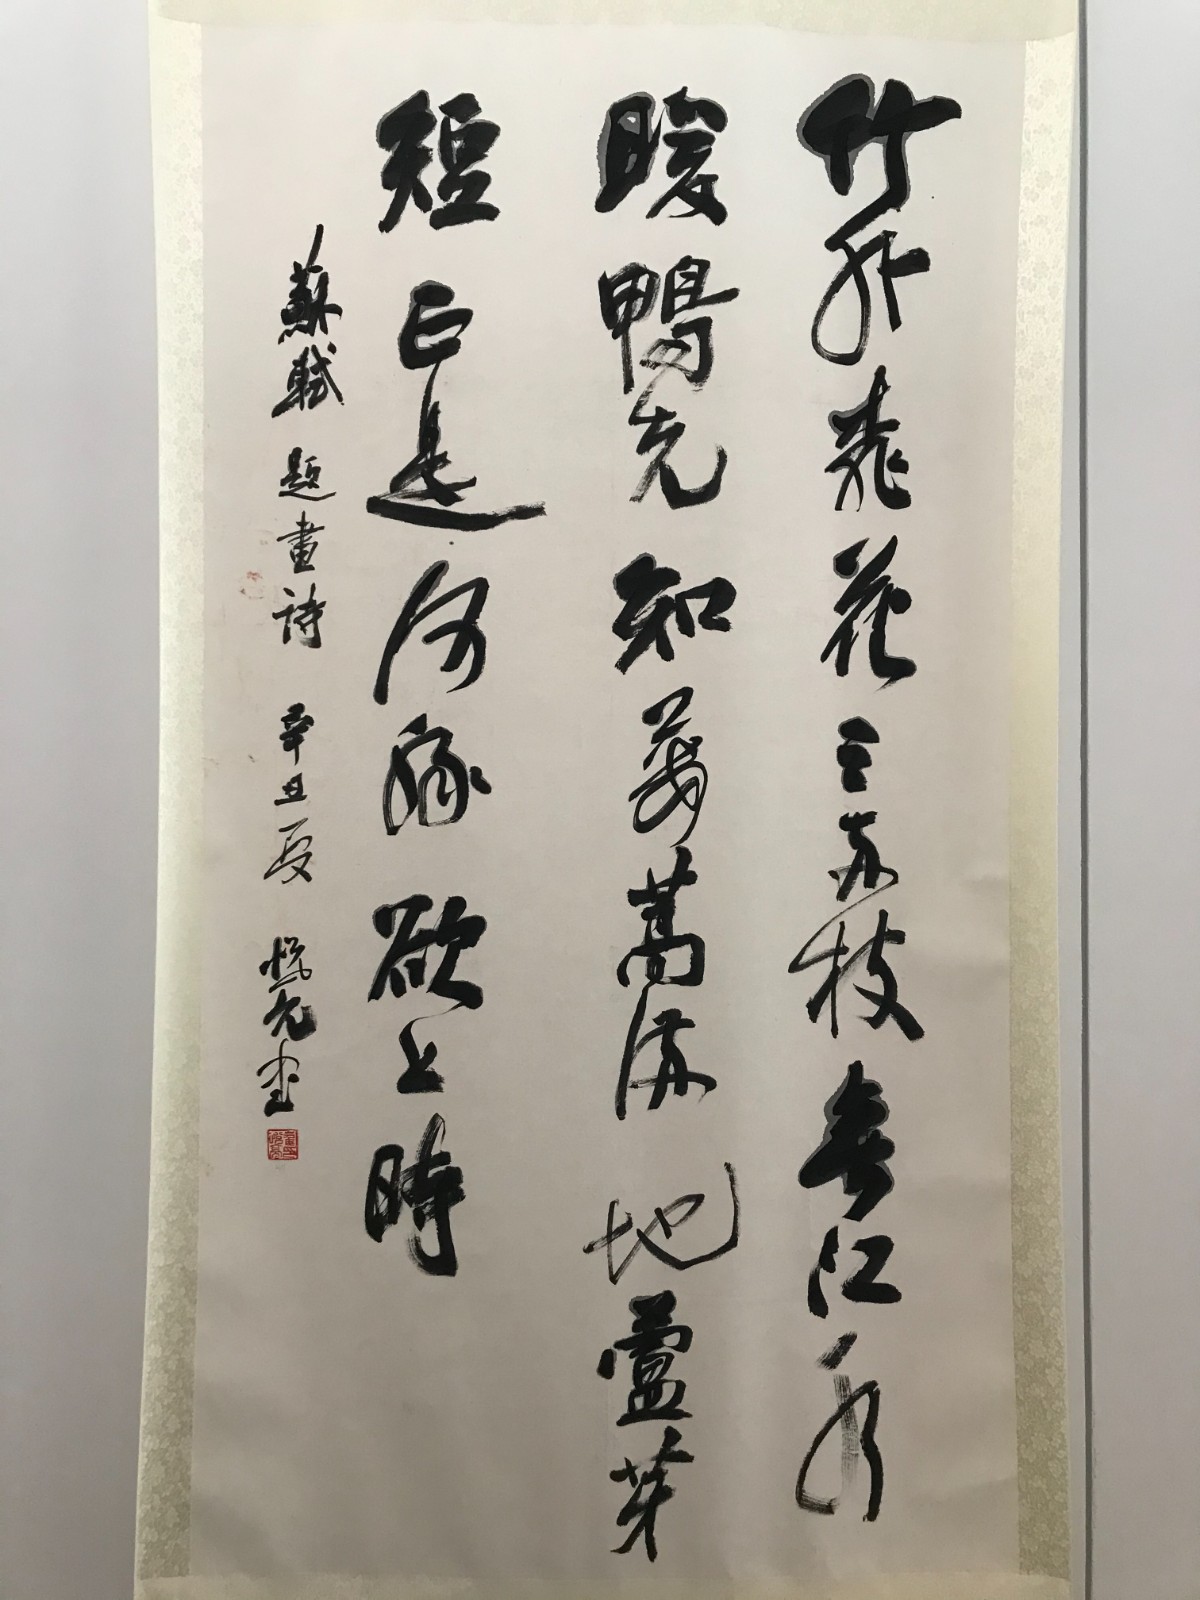 竹外桃花三兩枝春江水
暖鴨先知蔞蒿滿地蘆芽
短正是河豚欲上時
蘇軾題畫詩 辛丑夏 書